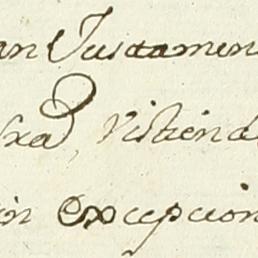 an Justamen
sxa, Vistiend
in excepcion